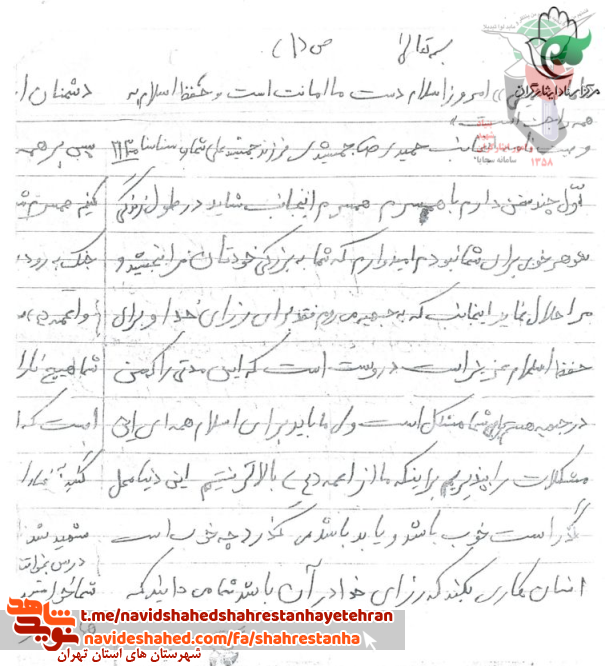 بسمه تعالی ص (۱)
امروز اسلام دست ما امانت است و حفظ اسلام به
دشمنان
همه واجب است»
اینجانب حمید رضا جمشیدی فرزند جمشید علی شماره شناسنامه
پس بر همه
اول چند سخن دارم با همسرم همسرم اینجانب شاید در طول زندگی
کنیم همسرم
شوهر خوبی برای شما نبودم امیدوارم که شما به بزرگی خودتان مرا ببخشید و
جنگ به زودی
مرا حلال نمایید اینجانب که به جبهه می روم فقط برای رضای خدا و برای
و ائمه
حفظ اسلام عزیز است درست است که این مدتی را که من
شما هیچ
در جبهه هستم برای شما مشکل است ولی ما باید برای اسلام همه ای این
است که
مشکلات را بپذیریم برای اینکه ما از ائمه بالاتر نیستیم این دنیا محل
گذر است خوب باشد و یا بد باشد می گذرد چه خوب است
شهید شد
درس بخوانند
انسان کاری بکند که رضای خدا در آن باشد شما می دانید که
مرکز اسناد ایثارگران
سامانه سجایا
۱۳۵۸
نوید شاهد
t.me/navidshahedshahrestanhayetehran
navideshahed.com/fa/shahrestanha
شهرستان های استان تهران